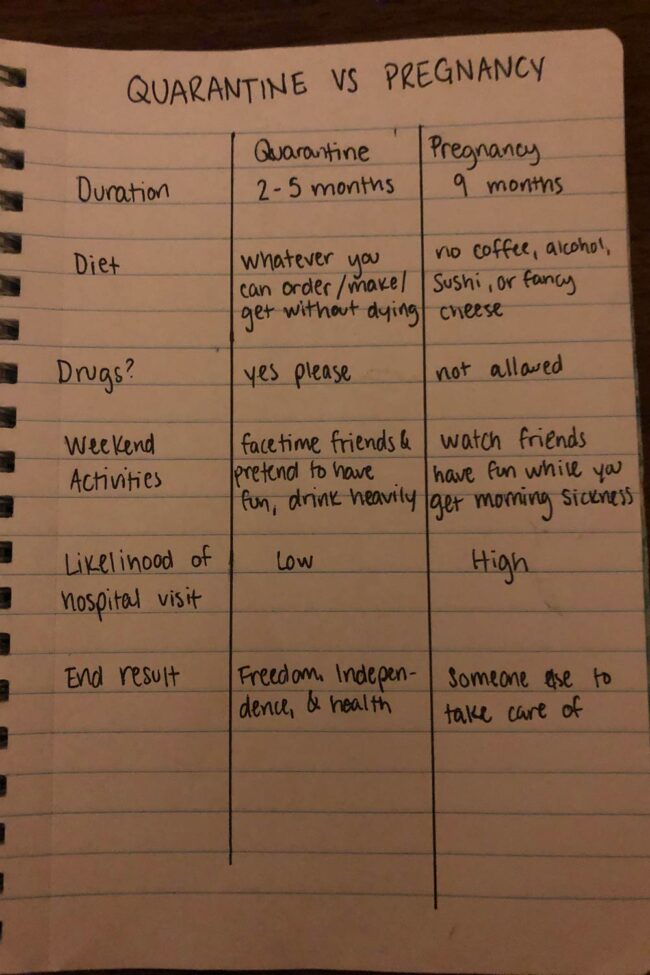 QUARANTINE VS PREGNANCY
Quarantine Pregnancy
Duration 2-5 months 9 months
Diet whatever you no coffee, alcohol,
can order/make/ Sushi, or fancy
get without dying cheese
Drugs? yes please not allowed
Weekend facetime friends & watch friends
Activities pretend to have have fun while you
fun, drink heavily get morning sickness
Likelihood of Low High
hospital visit
End result Freedom, Indepen- Someone else to
dence, & health take care of